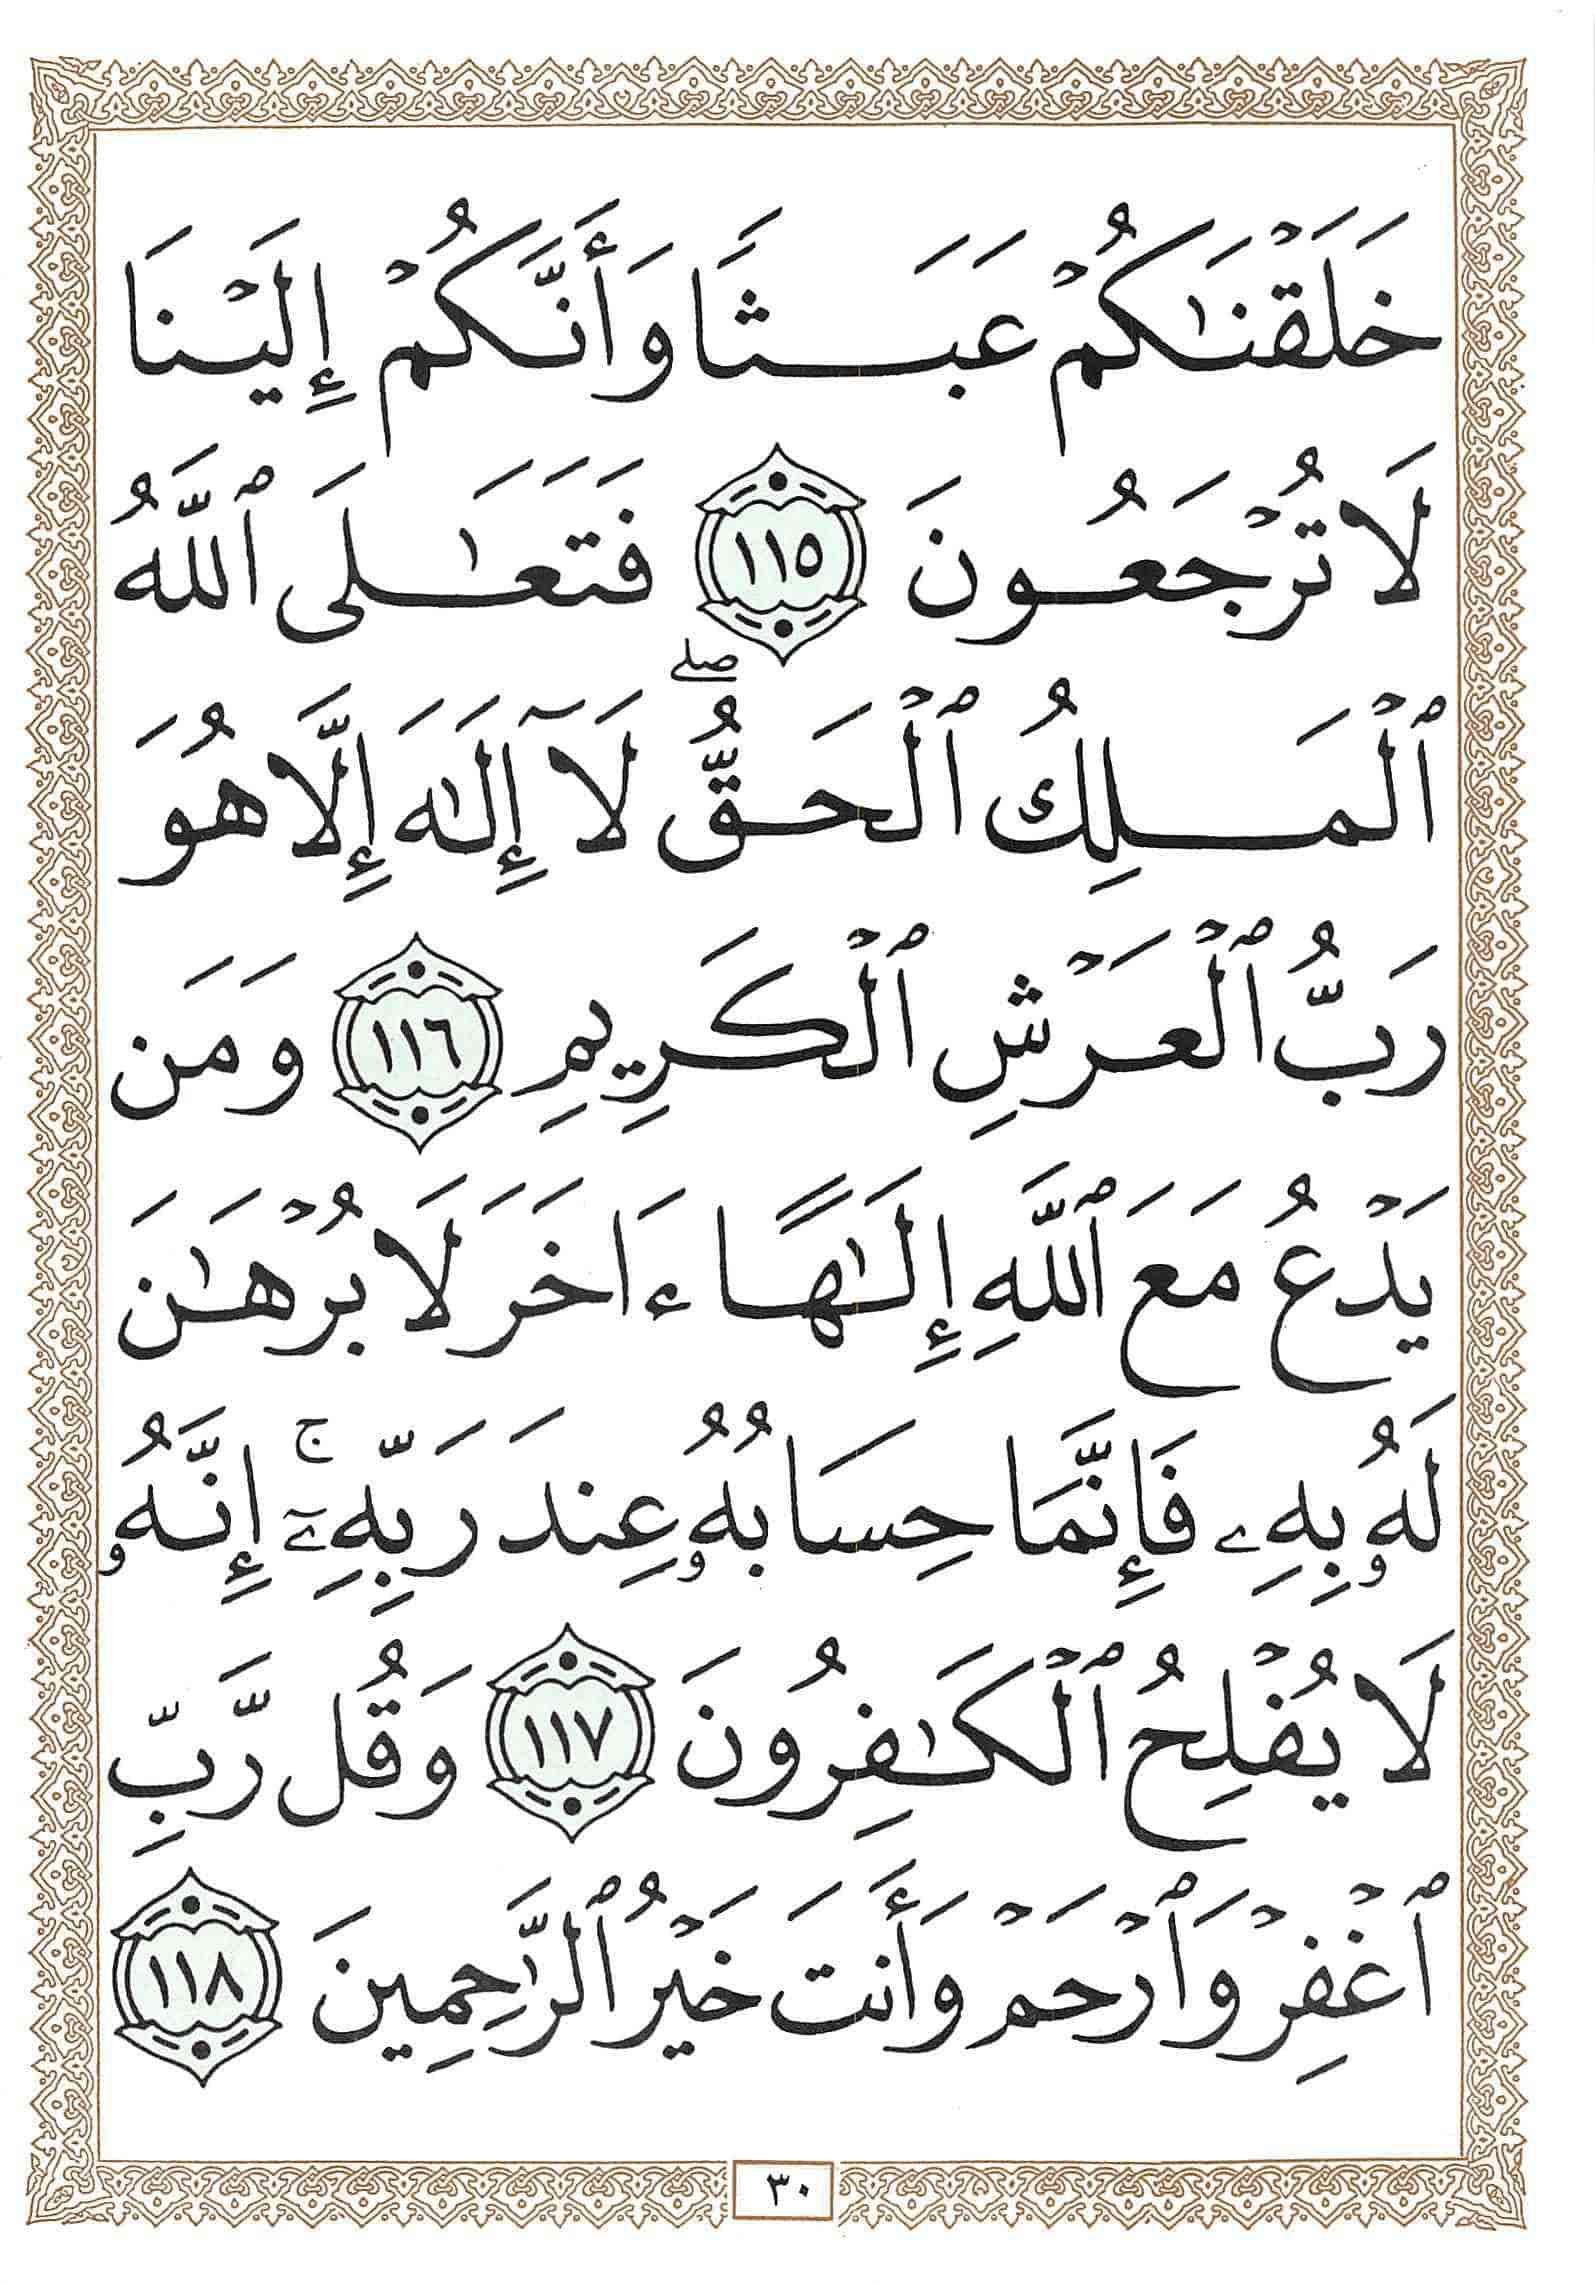 خَلَقْنَٰكُمْ عَبَثًا وَأَنَّكُمْ إِلَيْنَا
لَا تُرْجَعُونَ ١١٥ فَتَعَٰلَى ٱللَّهُ
ٱلْمَلِكُ ٱلْحَقُّ ۖ لَآ إِلَٰهَ إِلَّا هُوَ
رَبُّ ٱلْعَرْشِ ٱلْكَرِيمِ ١١٦ وَمَن
يَدْعُ مَعَ ٱللَّهِ إِلَٰهًا ءَاخَرَ لَا بُرْهَٰنَ
لَهُۥ بِهِۦ فَإِنَّمَا حِسَابُهُۥ عِندَ رَبِّهِۦٓ ۚ إِنَّهُۥ
لَا يُفْلِحُ ٱلْكَٰفِرُونَ ١١٧ وَقُل رَّبِّ
ٱغْفِرْ وَٱرْحَمْ وَأَنتَ خَيْرُ ٱلرَّٰحِمِينَ ١١٨
٣٠